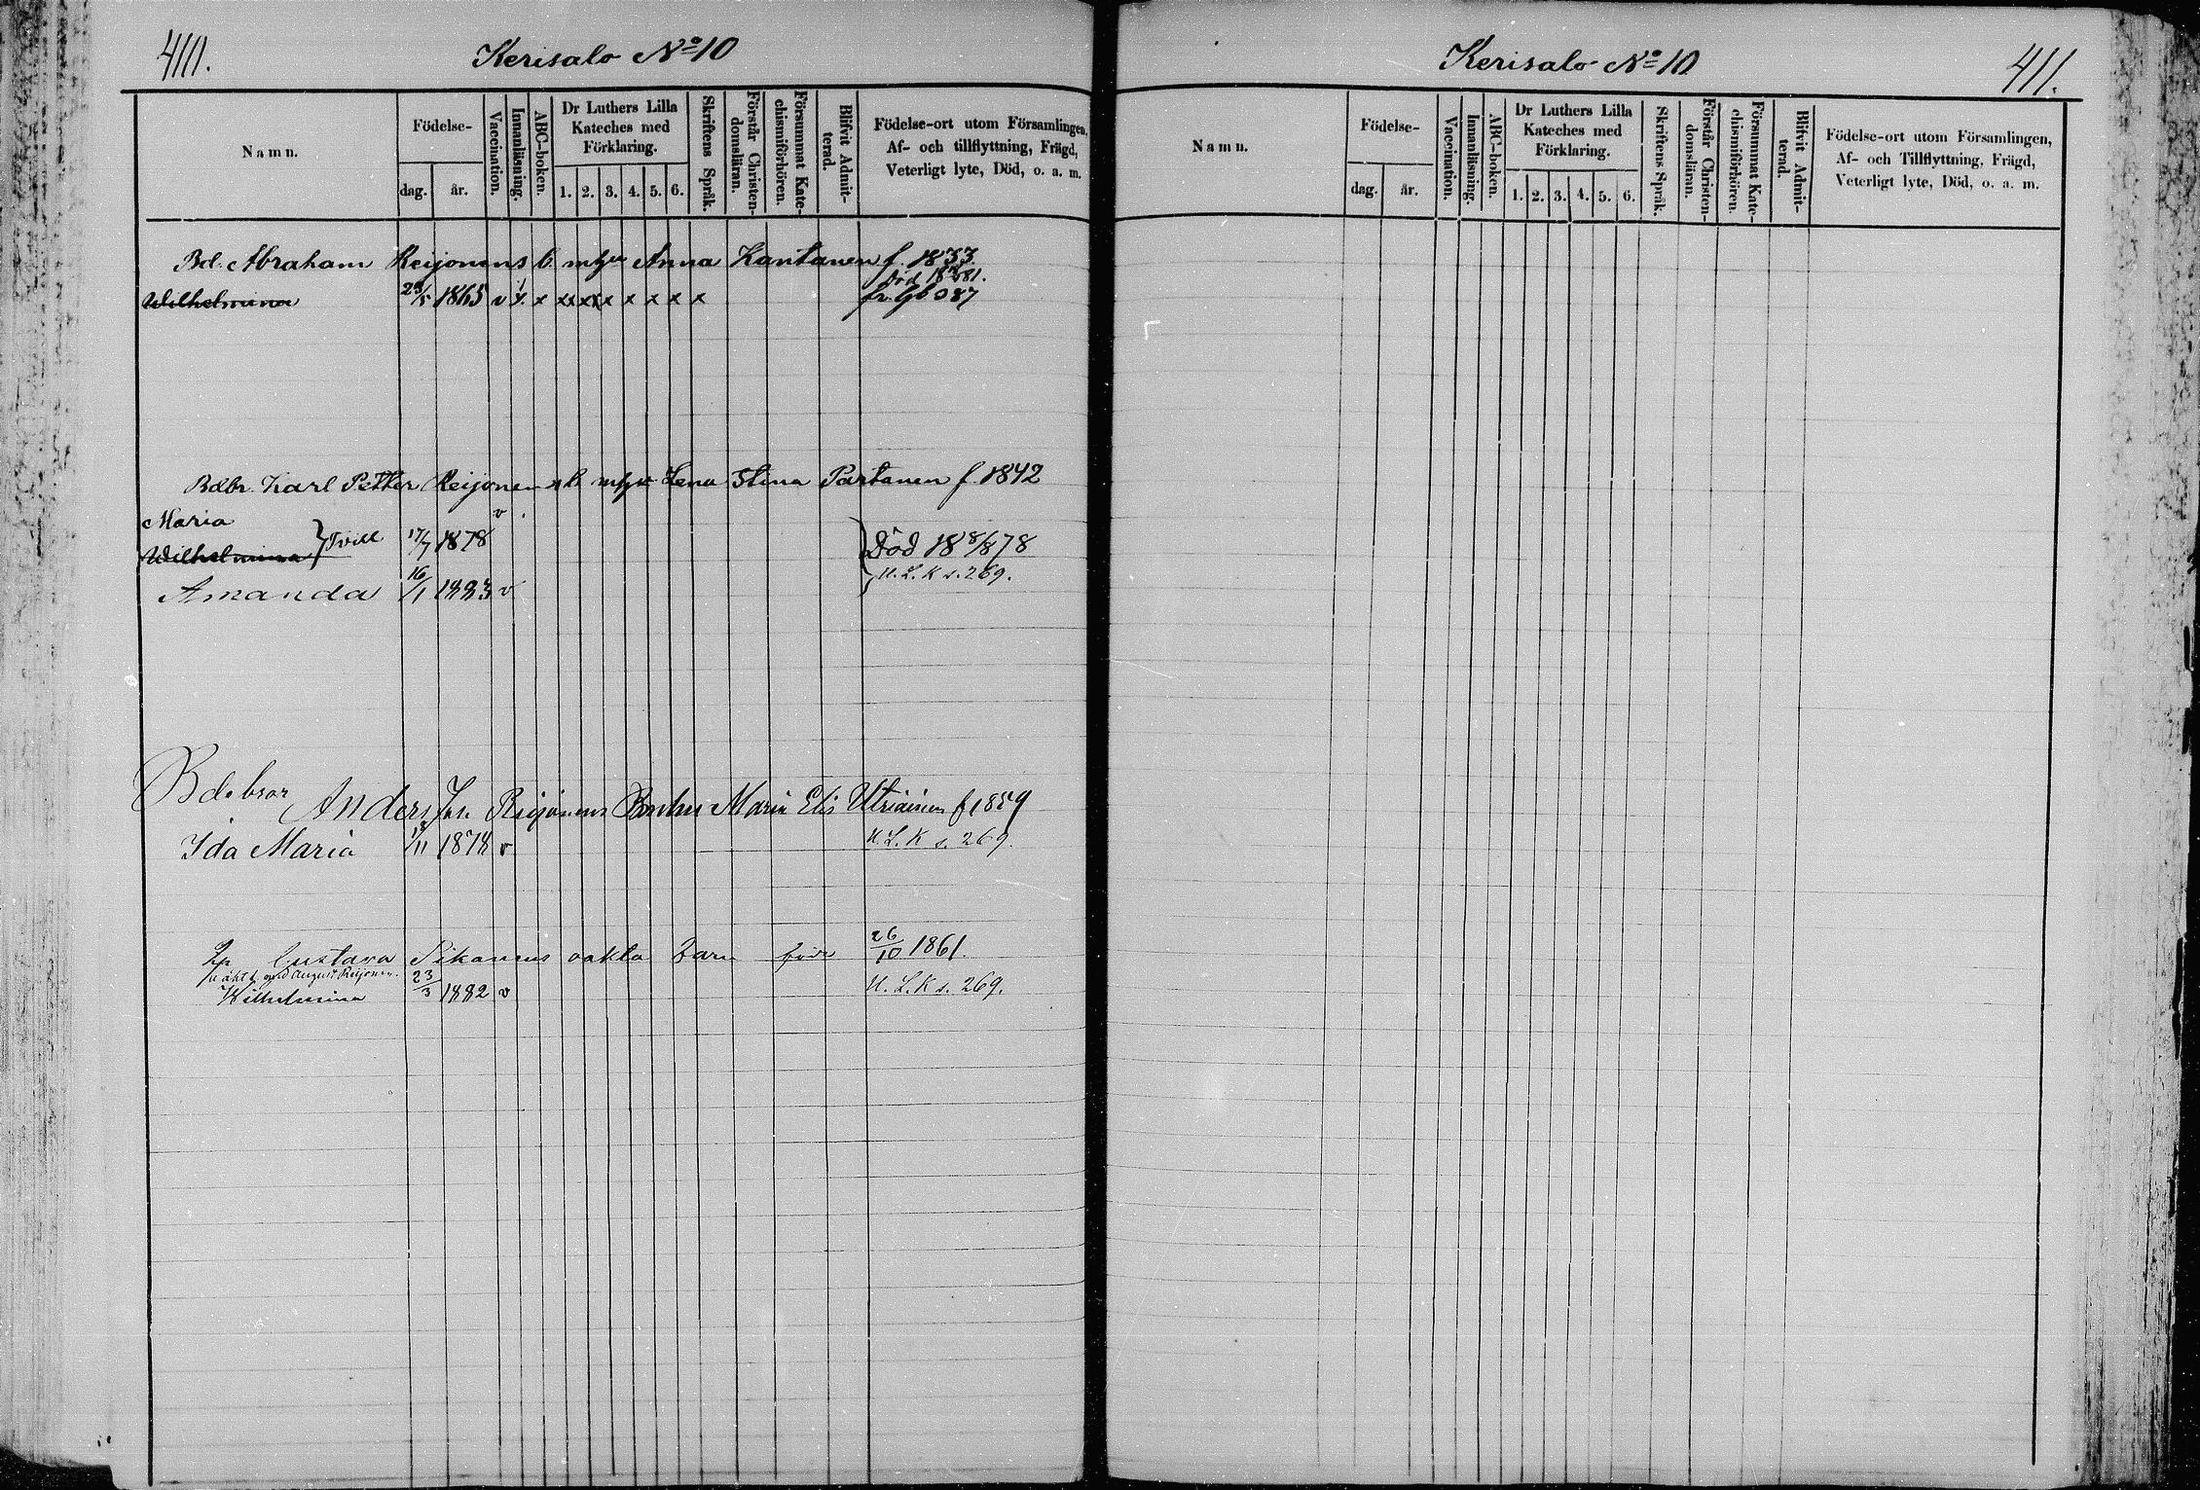 410.
Kerisalo No 10
Namn.
Födelse-
dag.
år.
Vaccination.
Innanläsning.
ABC-boken.
Dr Luthers Lilla
Kateches med
Förklaring.
1. 2. 3. 4. 5. 6.
Skriftens Språk.
Förstår Christen-
domsläran.
Försummat Kate-
chismiförhören.
Blifvit Admit-
terad.
Födelse-ort utom Församlingen,
Af- och tillflyttning, Frägd,
Veterligt lyte, Död, o. a. m.
Bd. Abraham Reijonens b. m hu Anna Kantanen f. 1833
Död 1881.
Wilhelmina 29/5 1865 v x x x x x x x x
Bdbr. Karl Petter Reijonens b m hu Lena Stina Partanen f. 1842
Maria v
Wilhelmina } Tvill 17/7 1878 Död 18 8/8 78
U. L. K s. 269.
Amanda 16/1 1883 v
Bdebror Anders Joh. Reijonens Barn hu Maria Elis Utriainen f 1859
Ida Maria 1/11 1878 v U. L. K s. 269.
Gustava Sikanens oakta barn född 26/10 1861.
August Reijonen.
Wilhelmina 23/3 1882 v U. L. K s. 269.
Kerisalo No 10
411.
Namn.
Födelse-
dag.
år.
Vaccination.
Innanläsning.
ABC-boken.
Dr Luthers Lilla
Kateches med
Förklaring.
1. 2. 3. 4. 5. 6.
Skriftens Språk.
Förstår Christen-
domsläran.
Försummat Kate-
chismiförhören.
Blifvit Admit-
terad.
Födelse-ort utom Församlingen,
Af- och Tillflyttning, Frägd,
Veterligt lyte, Död, o. a. m.